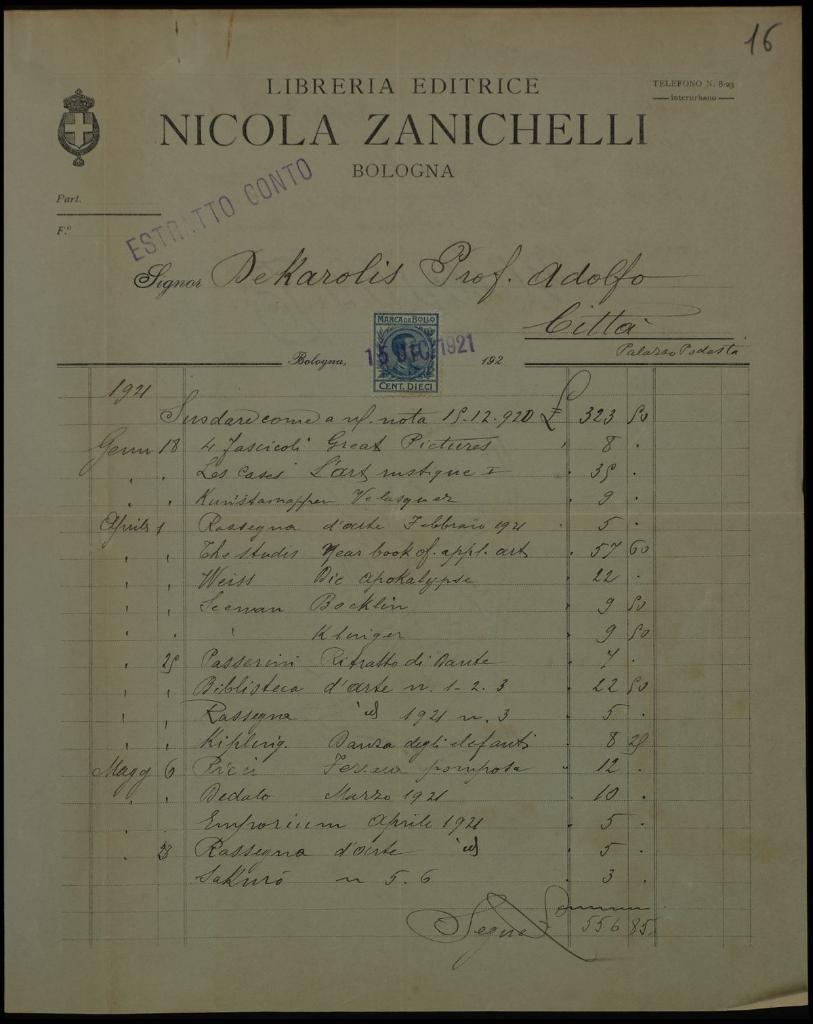 16
LIBRERIA EDITRICE
TELEFONO N. 8-23
Interurbano
NICOLA ZANICHELLI
BOLOGNA
Part.
F.º
ESTRATTO CONTO
Signor DeKarolis Prof. Adolfo
Città
Palazzo Podestà
MARCA DA BOLLO
CENT. DIECI
Bologna, 15 DIC. 1921 192
1921
nota 15.12.920 £ 323 50
Genn 18 4 fascicoli Great Pictures 8 .
Les Cases L'art rustique I 35 .
Velasquez 9 .
Aprile 1 Rassegna d'arte Febbraio 1921 5 .
The studio Year book of appl. art 57 60
Weiss Die Apokalypse 22 .
Seeman Bocklin 9 50
" Klinger 9 50
25 Passerini Ritratto di Dante 7 .
Biblioteca d'arte n. 1-2.3 22 50
Rassegna id 1921 n. 3 5 .
Kipling. Danza degli elefanti 8 25
Magg 6 Ricci pomposa 12 .
Dedalo Marzo 1921 10 .
Emporium Aprile 1921 5 .
28 Rassegna d'arte id 5 .
Sakuró n 5.6 3 .
Segue £ 556 85